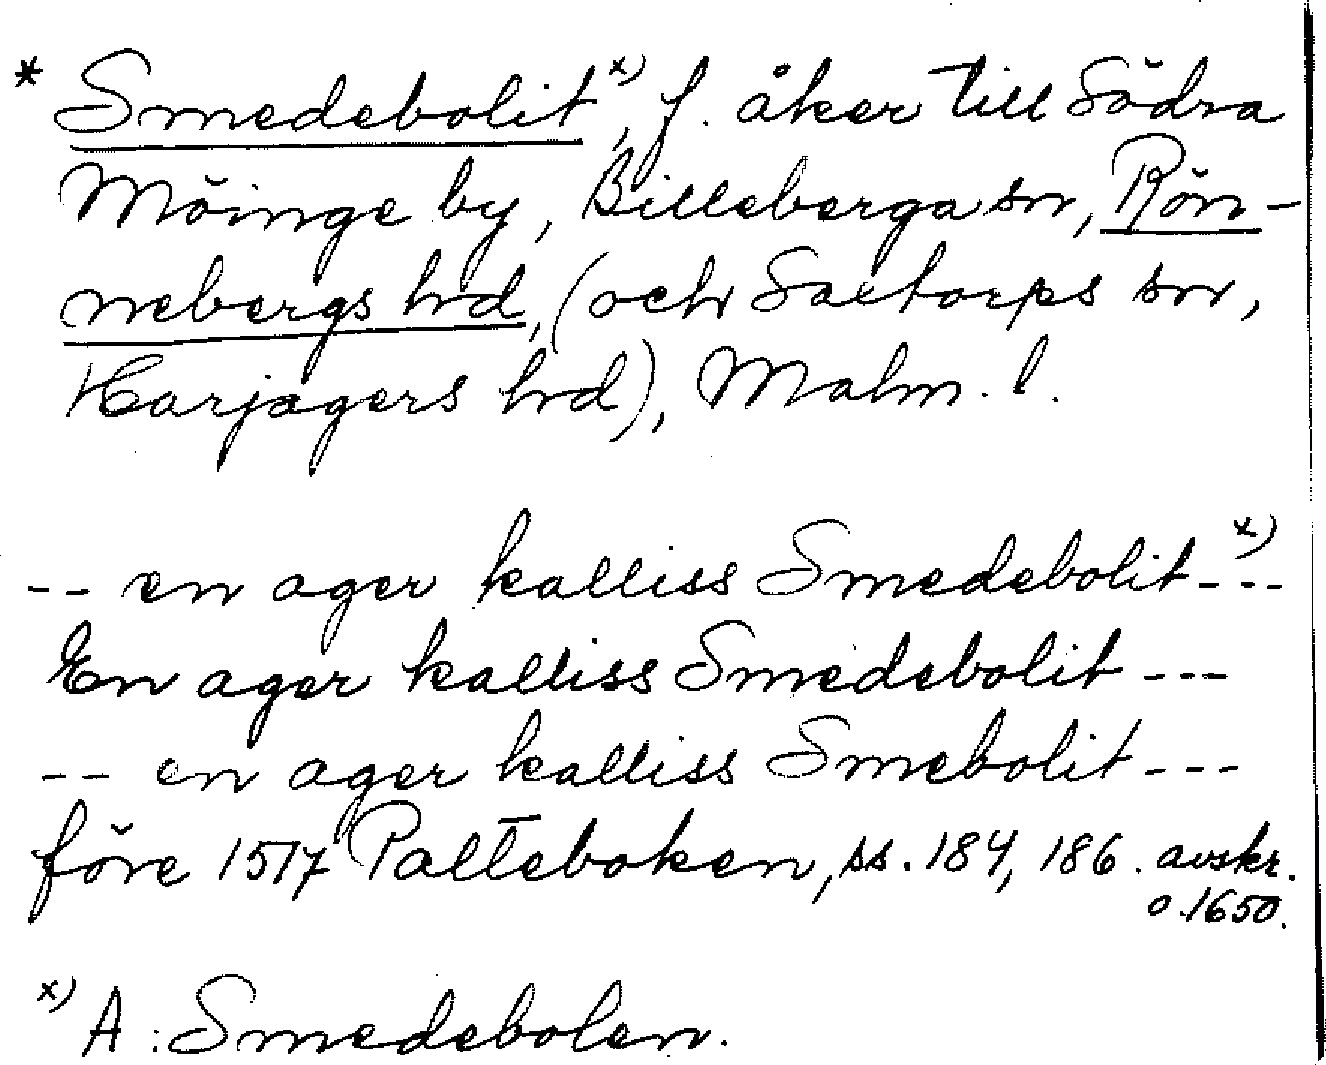 * Smedebolit x), f. åker till Södra
Möinge by, Billeberga sn, Rön-
nebergs hrd, (och Saxtorps sn,
Harjagers hrd), Malm. l.
-- en ager kalliss Smedebolit x) ---
En ager kalliss Smedebolit ---
-- en ager kalliss Smebolit ---
före 1517 Palteboken, ss. 184, 186. avskr.
o. 1650.
x) A: Smedebolen.